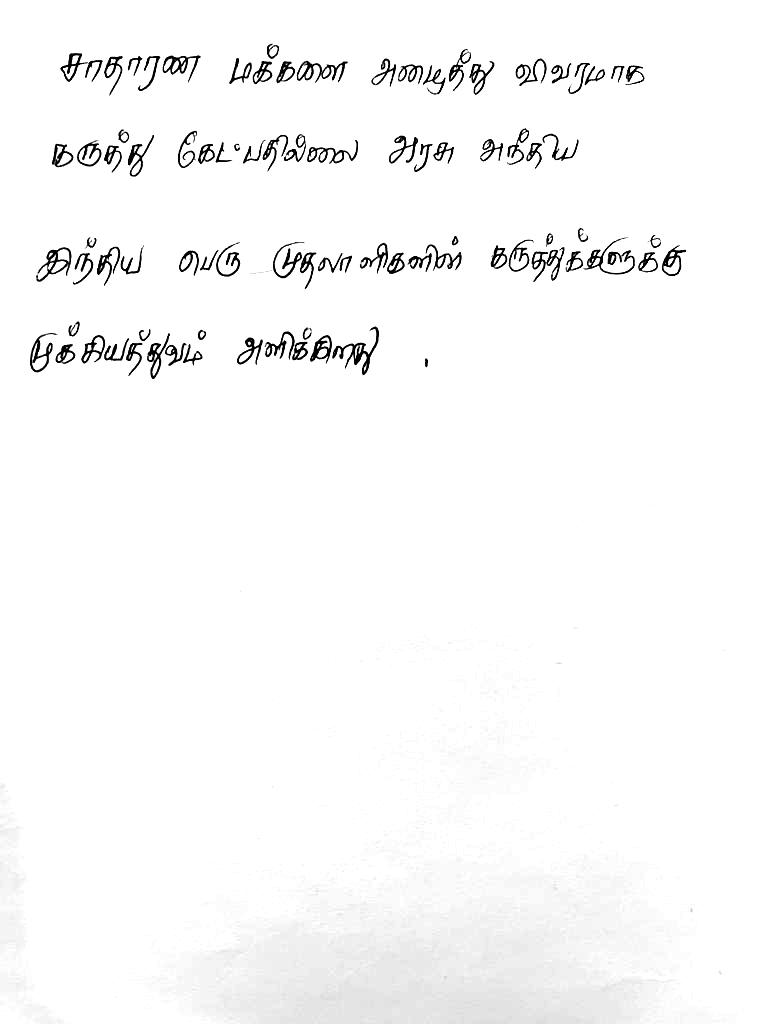 சாதாரண மக்களை அழைத்து விவரமாக
கருத்து கேட்பதில்லை அரசு அந்நிய
இந்திய பெரு முதலாளிகளின் கருத்துக்களுக்கு
முக்கியத்துவம் அளிக்கிறது .